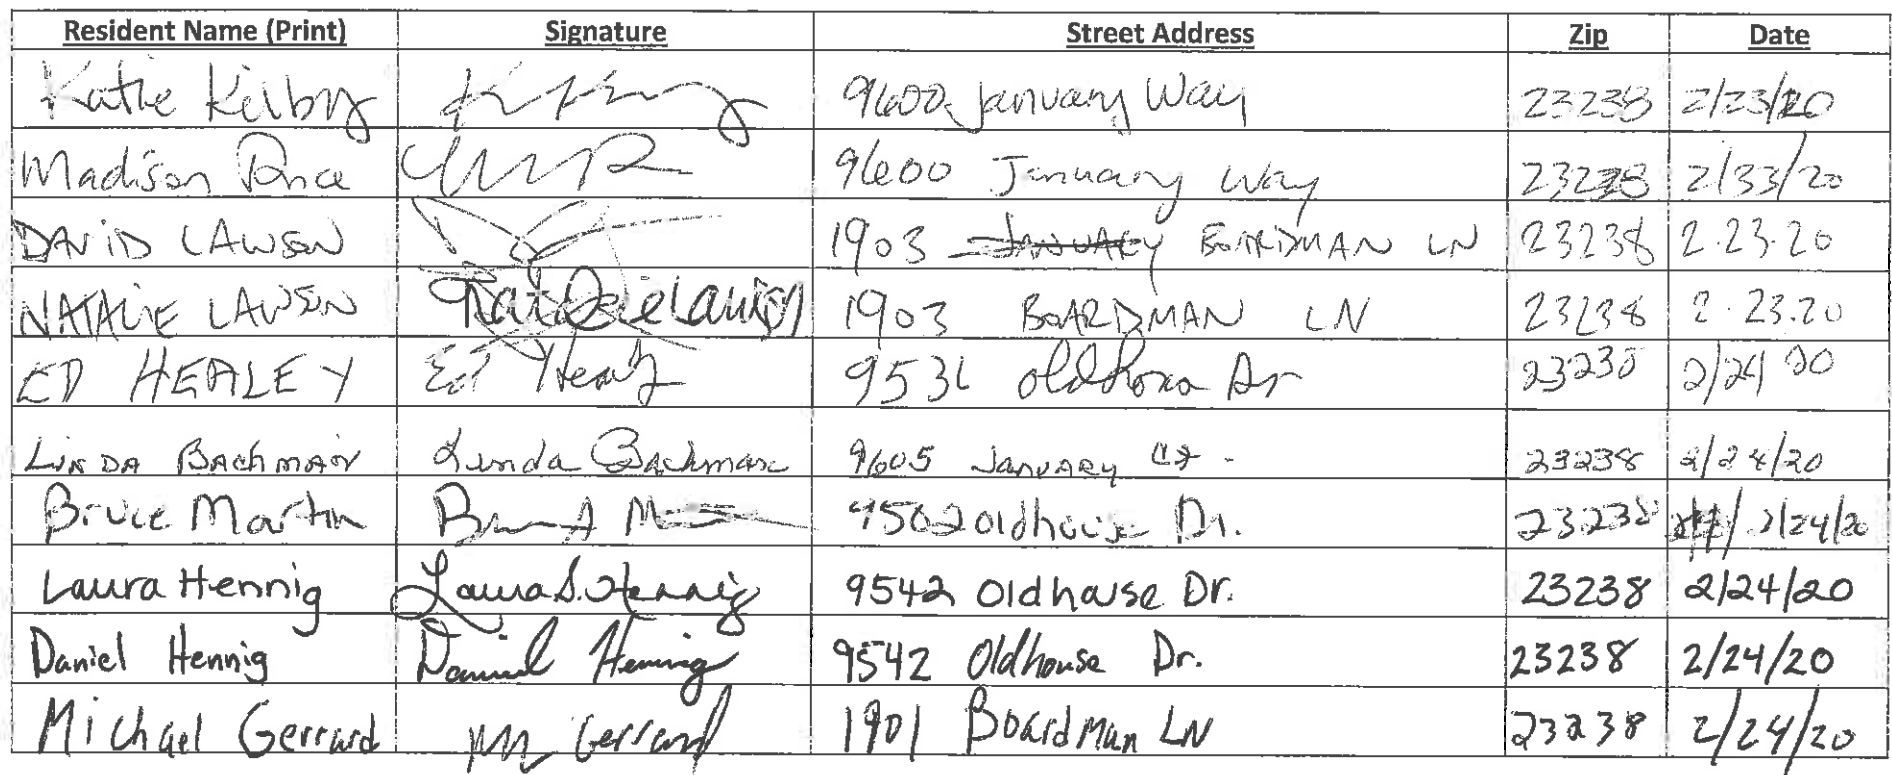 Resident Name (Print) Signature Street Address Zip Date
Katie Kilby 9600 January Way 23238 2/23/20
Madison Price 9600 January Way 23238 2/33/20
DAVID LAWSON 1903 JANUARY BOARDMAN LN 23238 2.23.20
NATALIE LAWSON Natalie Lawson 1903 BOARDMAN LN 23238 2.23.20
ED HEALEY Ed Healy 9531 Dr 23238 2/24/20
LINDA BACHMAN Linda Bachman 9605 JANUARY Ct. 23238 2/24/20
Bruce Martin 9502 Oldhouse Dr. 23238 2/24/20
Laura Hennig Laura S. Hennig 9542 Oldhouse Dr. 23238 2/24/20
Daniel Hennig Daniel Hennig 9542 Oldhouse Dr. 23238 2/24/20
Michael Gerrard M Gerrard 1901 BoardMan LN 23238 2/24/20